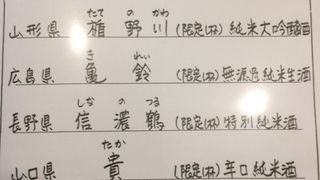 たて の かわ
山形県 楯野川 (限定1杯) 純米大吟醸酒
き れい
広島県 亀鈴 (限定1杯) 無濾過純米生酒
しな の つる
長野県 信濃鶴 (限定1杯) 特別純米酒
たか
山口県 貴 (限定1杯) 辛口純米酒